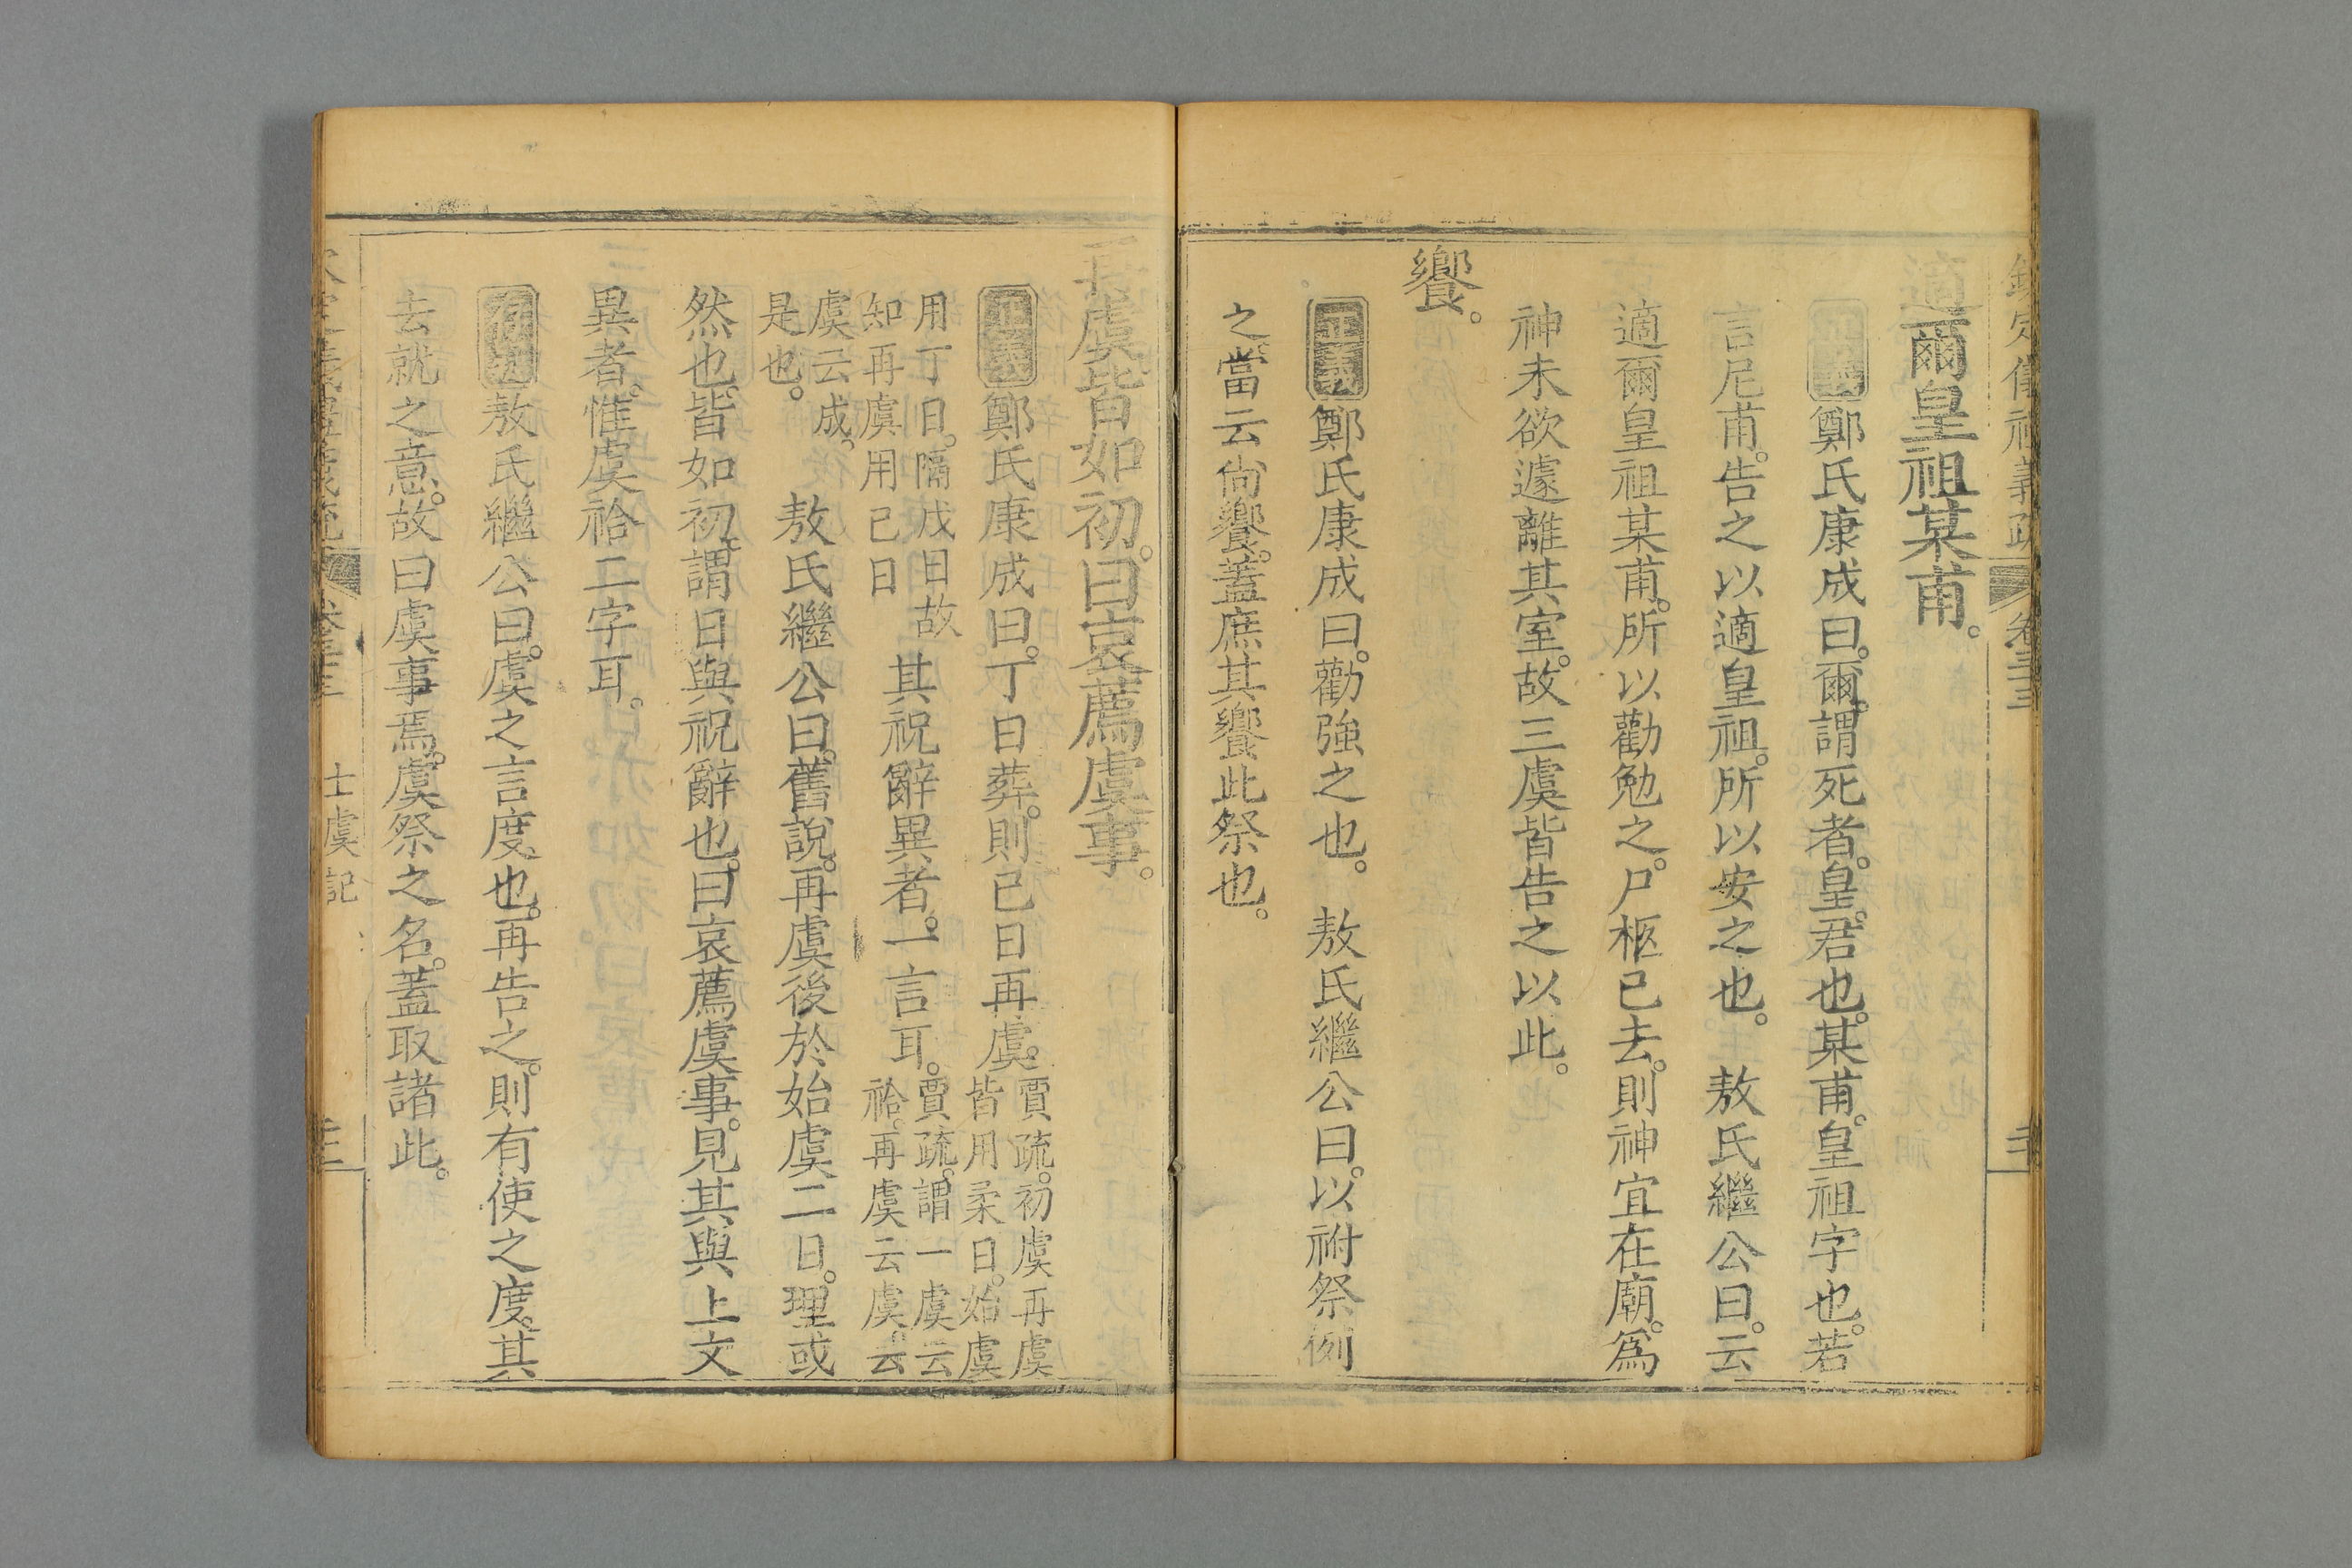 適爾皇祖某甫。
正義鄭氏康成曰。爾。謂死者。皇。君也。某甫。皇祖字也。若
言尼甫。告之以適皇祖。所以安之也。 敖氏繼公曰。云
適爾皇祖某甫。所以勸勉之。尸柩已去。則神宜在廟。爲
神未欲遽離其室。故三虞皆告之以此。
饗。
正義鄭氏康成曰。勸強之也。 敖氏繼公曰。以祔祭例
之。當云尙饗。蓋庶其饗此祭也。
再虞皆如初。曰哀薦虞事。
正義鄭氏康成曰。丁日葬。則己日再虞。賈疏。初虞再虞
皆用柔日。始虞
用丁日。隔戊日故
知再虞用己日
其祝辭異者。一言耳。賈疏。謂一虞云
祫。再虞云虞。云
虞云成。
是也。
敖氏繼公曰。舊說。再虞後於始虞二日。理或
然也。皆如初。謂日與祝辭也。曰哀薦虞事。見其與上文
異者。惟虞祫二字耳。
存疑敖氏繼公曰。虞之言度也。再告之。則有使之度。其
去就之意。故曰虞事焉。虞祭之名。蓋取諸此。
士虞記